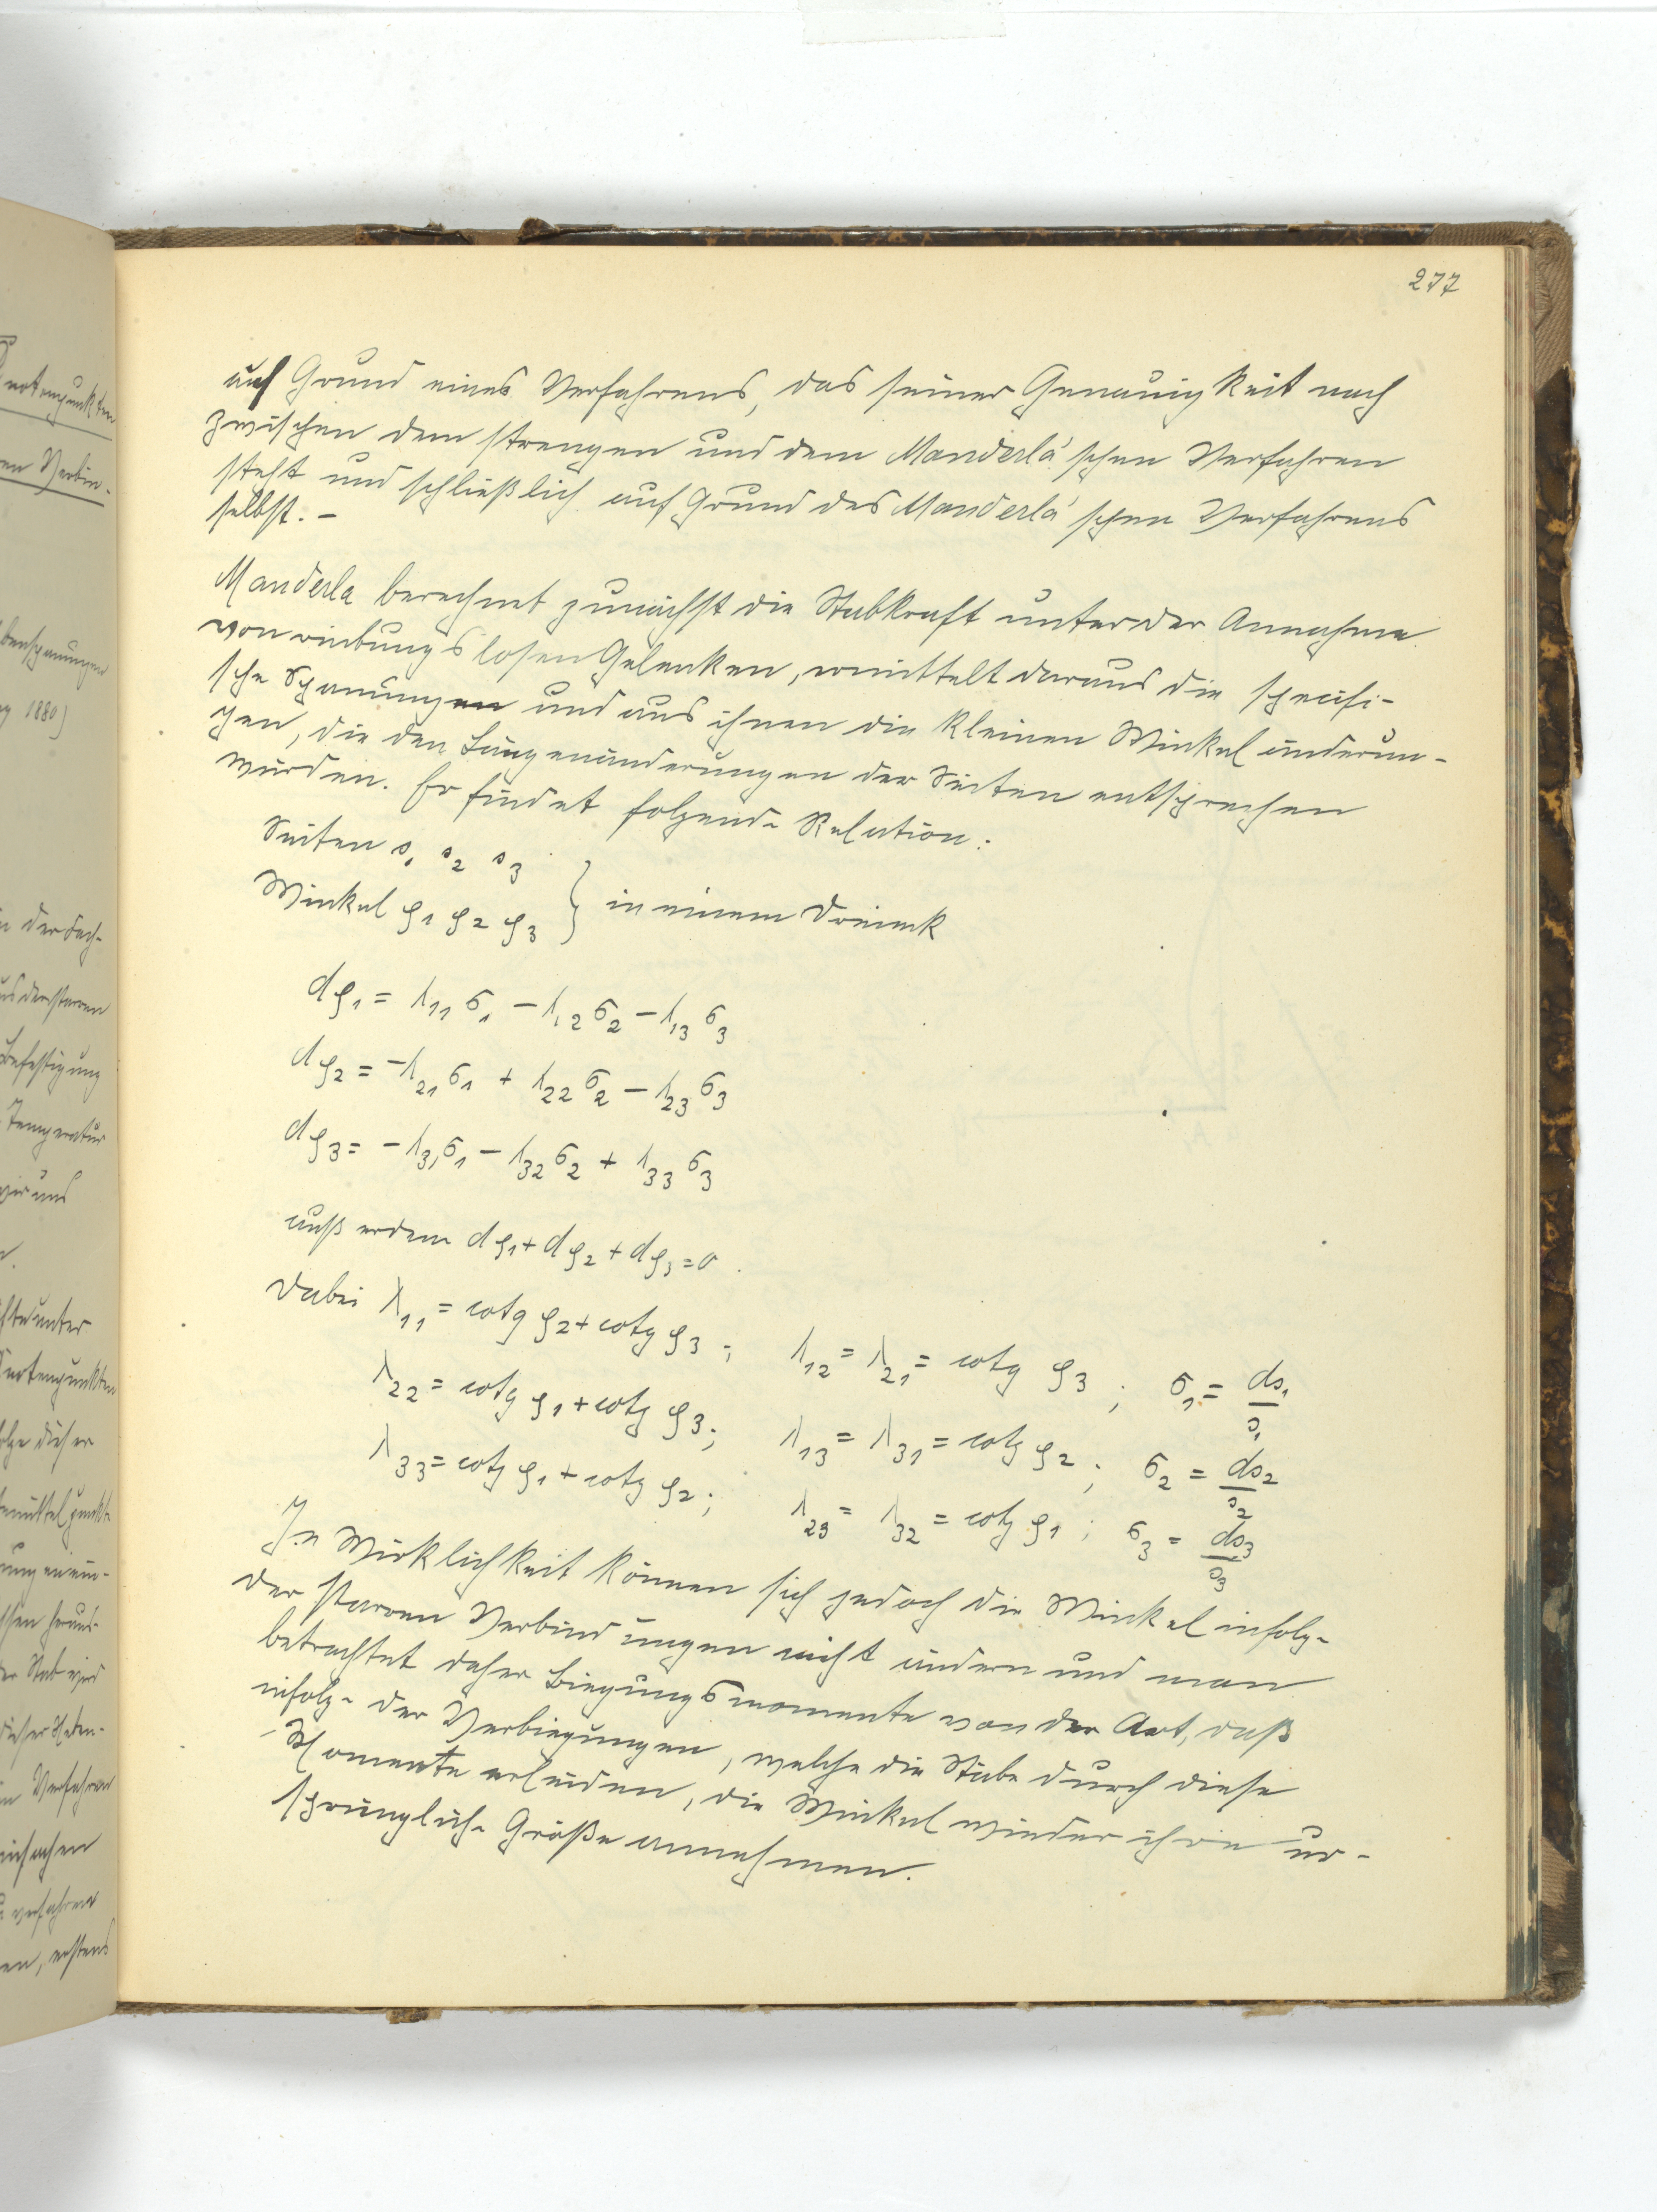 277
auf Grund eines Verfahrens, das seiner Genauigkeit nach
zwischen dem strengen und dem Manderla'schen Verfahren
steht und schließlich auf Grund des Manderla'schen Verfahrens
selbst. –
Manderla berechnet zunächst die Stabkraft unter der Annahme
von reibungslosen Gelenken, ermittelt daraus die specifi-
sche Spannungen und aus ihnen die kleinen Winkeländerun-
gen, die den Längenänderungen der Seiten entsprechen
würden. Er findet folgende Relation:
Seiten s₁ s₂ s₃
Winkel φ₁ φ₂ φ₃ } in einem Dreieck
dφ₁ = λ₁₁ σ₁ – λ₁₂ σ₂ – λ₁₃ σ₃
dφ₂ = –λ₂₁ σ₁ + λ₂₂ σ₂ – λ₂₃ σ₃
dφ₃ = –λ₃₁ σ₁ – λ₃₂ σ₂ + λ₃₃ σ₃
außerdem dφ₁ + dφ₂ + dφ₃ = 0.
Dabei λ₁₁ = cotg φ₂ + cotg φ₃; λ₁₂ = λ₂₁ = cotg φ₃; σ₁ = ds₁/s₁
λ₂₂ = cotg φ₁ + cotg φ₃; λ₁₃ = λ₃₁ = cotg φ₂; σ₂ = ds₂/s₂
λ₃₃ = cotg φ₁ + cotg φ₂; λ₂₃ = λ₃₂ = cotg φ₁; σ₃ = ds₃/s₃
In Wirklichkeit können sich jedoch die Winkel infolge
der starren Verbindungen nicht ändern und man
betrachtet daher Biegungsmomente von der Art, daß
infolge der Verbiegungen, welche die Stäbe durch diese
Momente erleiden, die Winkel wieder ihre ur-
sprüngliche Größe annehmen.